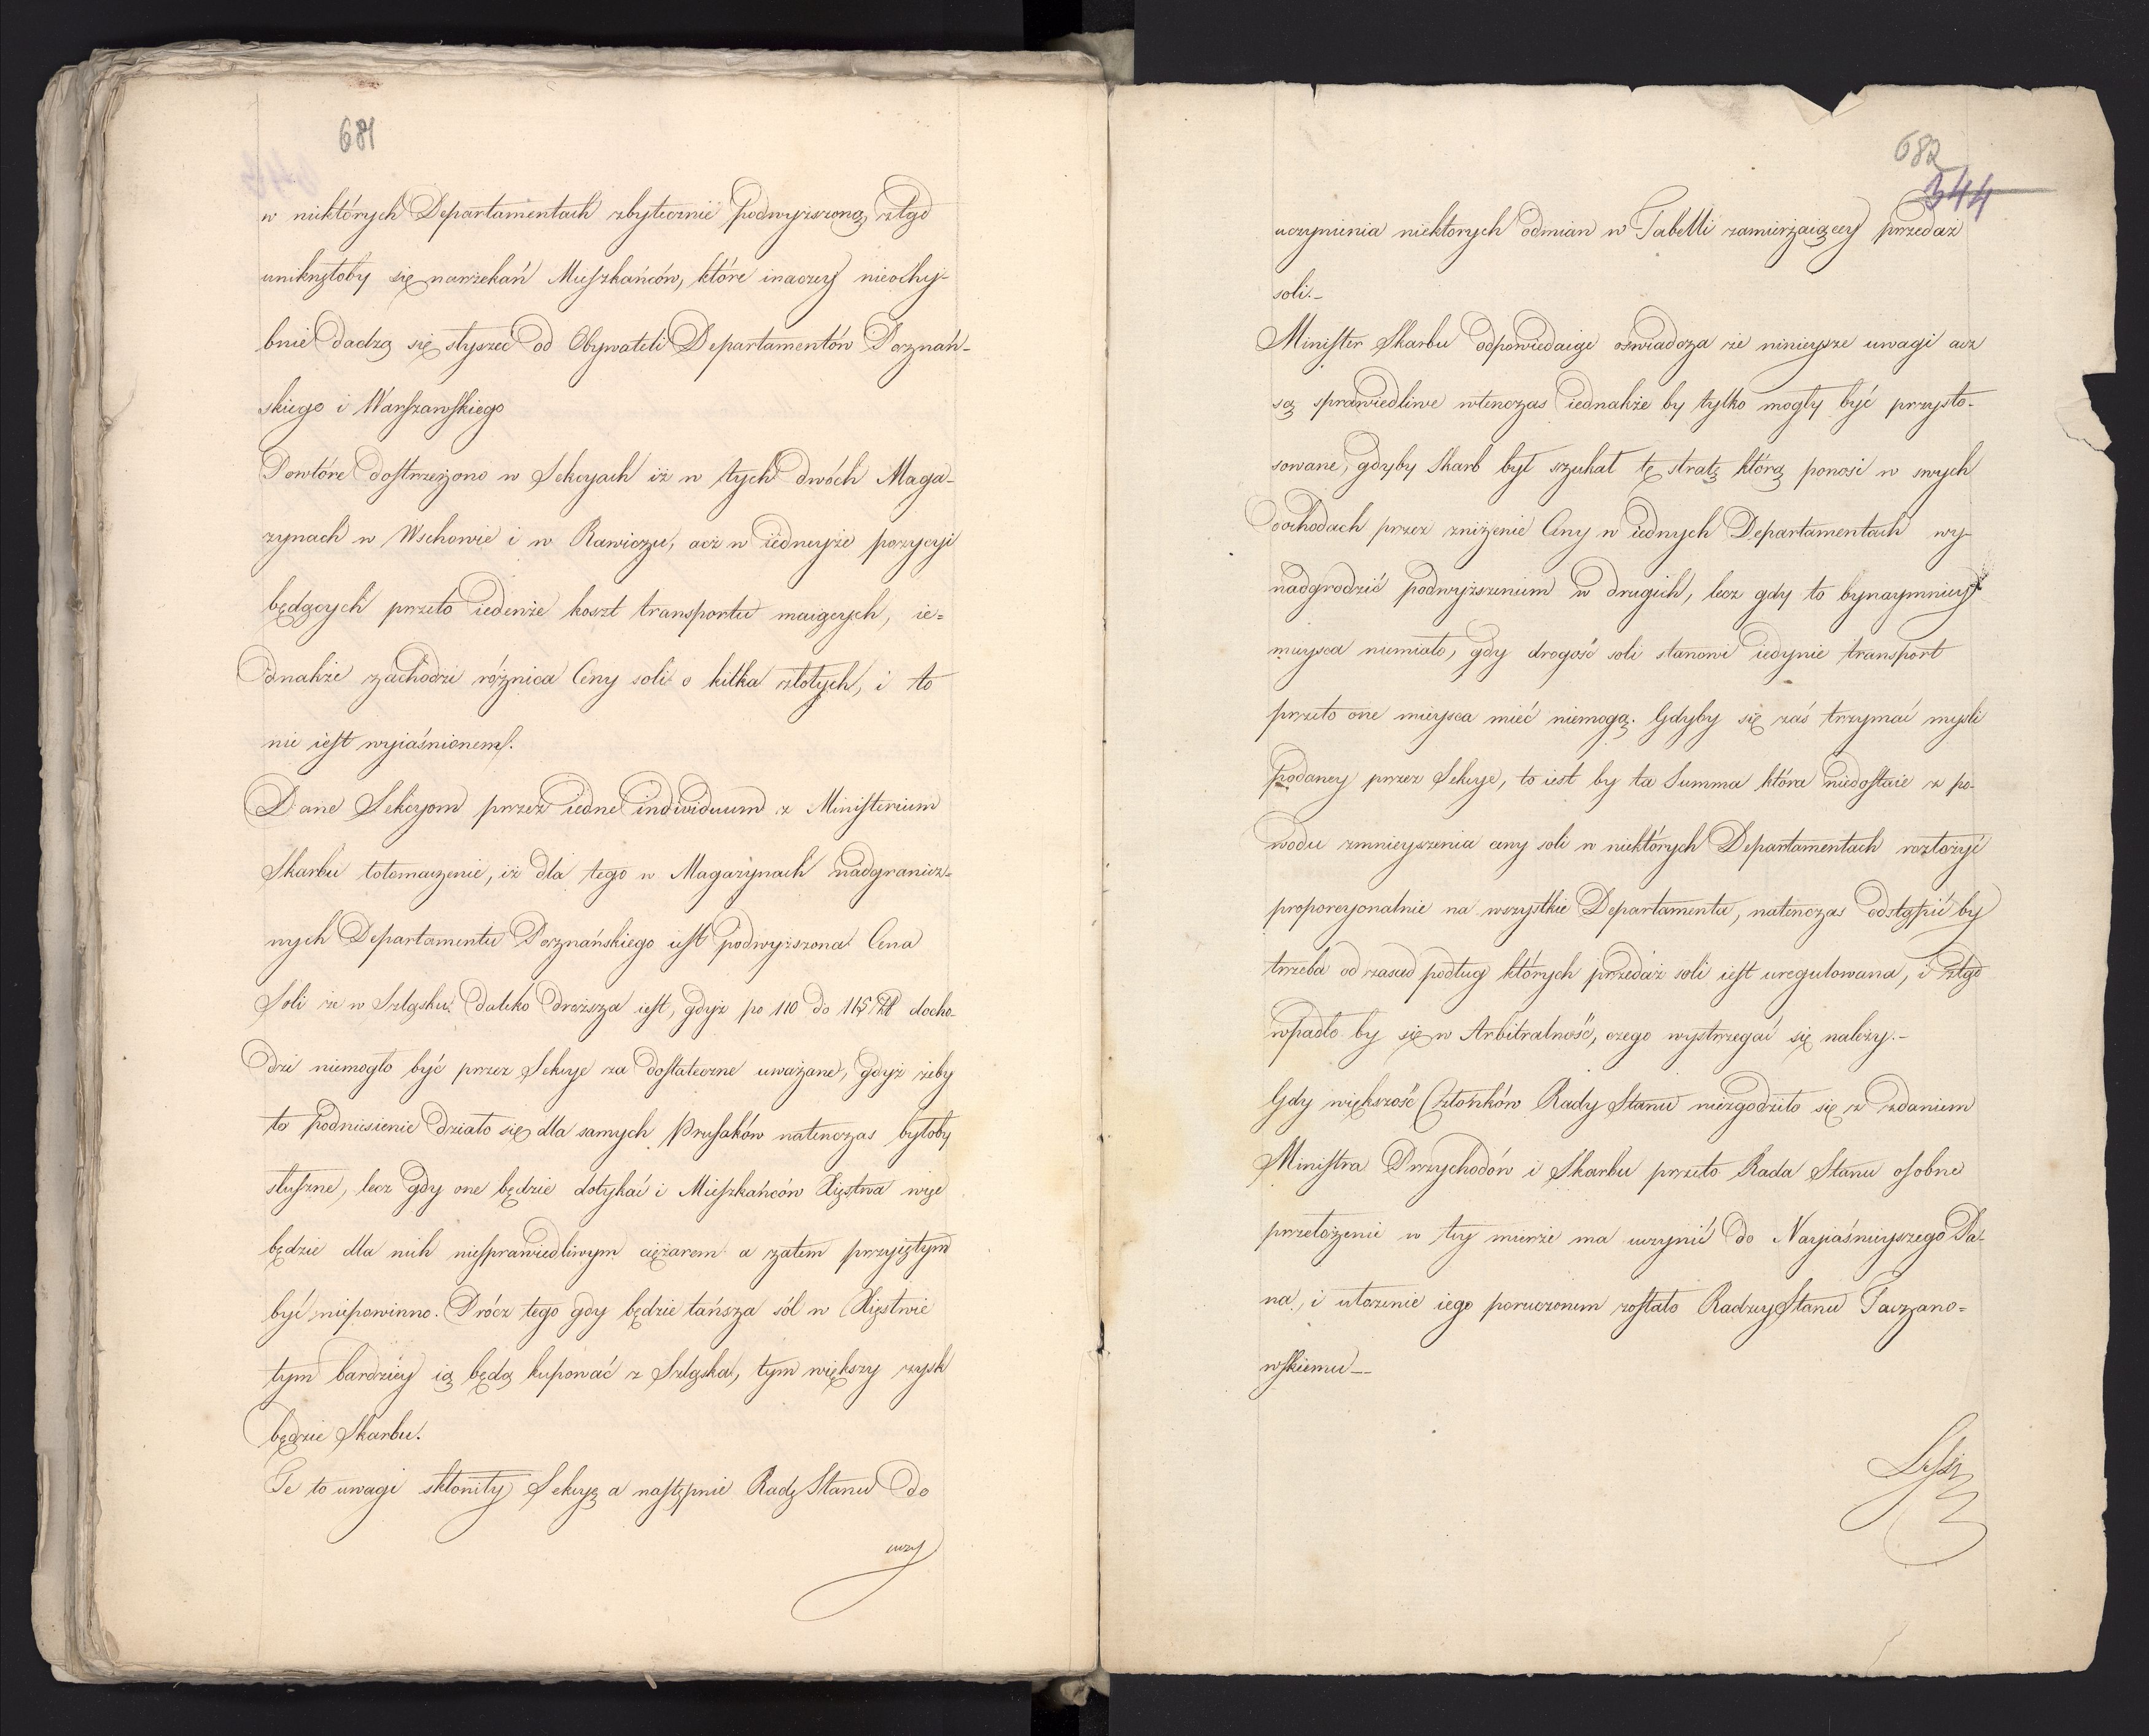 681
w niektórych Departamentach zbytecznie podwyższoną, ztąd
uniknęłoby się narzekań Mieszkańców, które inaczey nieochy-
bnie dadzą się słyszeć od Obywateli Departamentów Poznań-
skiego i Warszawskiego
Powtóre dostrzeżono w Sekcyach iż w tych dwóch Maga-
zynach w Wschowie i w Rawiczu, acz w iedneyże pozycyi
będących przeto iedenże koszt transportu maiących, ie=
dnakże zachodzi różnica Ceny soli o kilka złotych, i to
nie iest wyiaśnionem.
Dane Sekcyom przez iedne individuum z Ministerium
Skarbu tłomaczenie, iż dla tego w Magazynach nadgranicz-
nych Departamentu Poznańskiego iest podwyższona Cena
Soli że w Szląsku daleko droższa iest, gdyż po 110 do 115 Zł docho-
dzi niemogło być przez Sekcye za dostateczne uważane, gdyż żeby
to podniesienie działo się dla samych Prusaków natenczas byłoby
słuszne, lecz gdy one będzie dotykać i Mieszkańców Xięstwa więc
będzie dla nich niesprawiedliwym ciężarem a zatem przyiętym
być niepowinno. Prócz tego gdy będzie tańsza sól w Xięstwie
tym bardziey ią będą kupować z Szląska, tym większy zysk
będzie Skarbu.
Te to uwagi skłoniły Sekcyą a następnie Radę Stanu do
uczy
682
344
uczynienia niektorych odmian w Tabelli zamierzaiącey przedaż
soli.-
Minister Skarbu odpowiedaiąc oświadcza że ninieysze uwagi acz
są sprawiedliwe wtenczas iednakże by tylko mogły być przysto-
sowane, gdyby Skarb był szukał tę stratę którą ponosi w swych
dochodach przez zniżenie Ceny w iednych Departamentach wy-
nadgrodzić podwyższeniem w drugich, lecz gdy to bynaymniey
mieysca niemiało, gdy drogość soli stanowi iedynie transport
przeto one mieysca mieć niemogą. Gdyby się zaś trzymać mysli
podaney przez Sekcye, to iest by ta Summa która niedostaie z po-
wodu zmnieyszenia ceny soli w niektórych Departamentach rozłożyć
proporcyonalnie na wszystkie Departamenta, natenczas odstąpić by
trzeba od zasad podług których przedaż soli iest uregulowana, i ztąd
wpadło by się w Arbitralność, czego wystrzegać się należy.-
Gdy większość Członków Rady Stanu niezgodziło się z zdaniem
Ministra Przychodów i Skarbu przeto Rada Stanu osobne
przełożenie w tey mierze ma uczynić do Nayiaśnieyszego Pa-
na, i ułożenie iego poruczonem zostało Radzcy Stanu Taczano=
wskiemu--